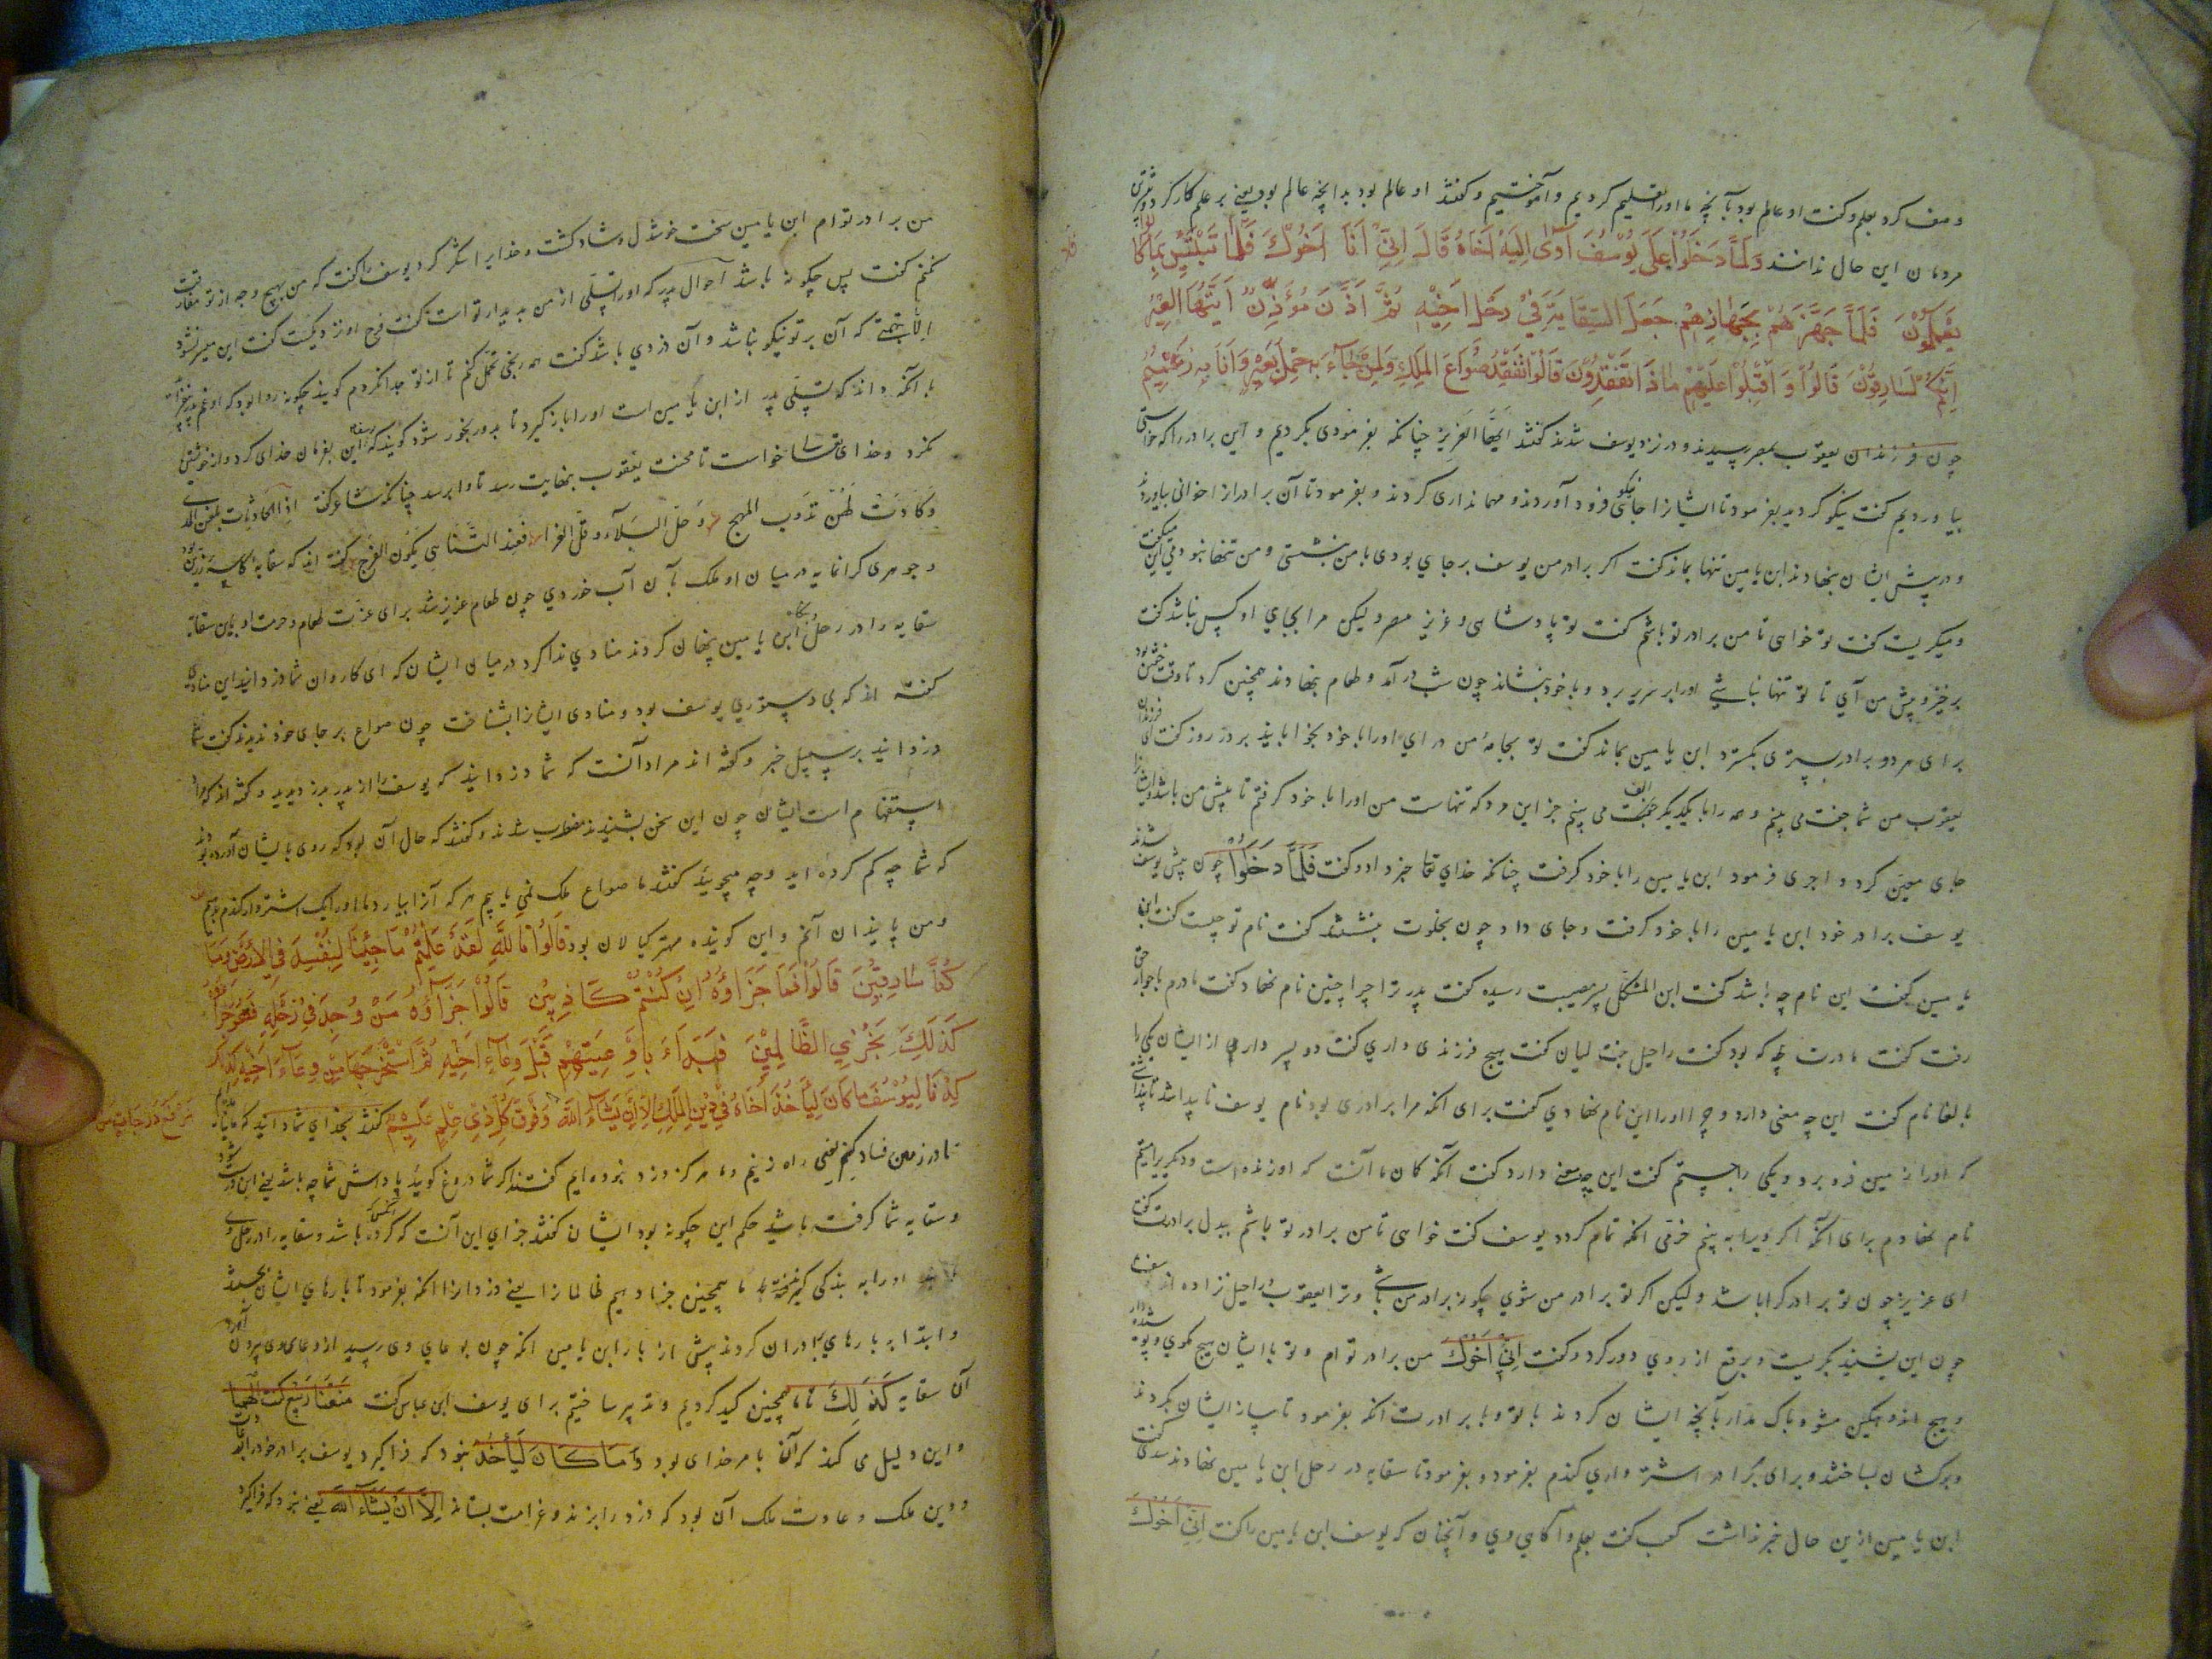 وصف کرد بعلم و گفت او عالم بود بآنچه ما او را تعلیم کردیم و آموختیم و گفتند او عالم بود بدانچه عالم بود یعنی بر علم کار کرد
مردمان این حال ندانند وَلَمَّا دَخَلُوا عَلَىٰ يُوسُفَ آوَىٰ إِلَيْهِ أَخَاهُ قَالَ إِنِّي أَنَا أَخُوكَ فَلَا تَبْتَئِسْ بِمَا كَانُوا
يَعْمَلُونَ فَلَمَّا جَهَّزَهُمْ بِجَهَازِهِمْ جَعَلَ السِّقَايَةَ فِي رَحْلِ أَخِيهِ ثُمَّ أَذَّنَ مُؤَذِّنٌ أَيَّتُهَا الْعِيرُ
إِنَّكُمْ لَسَارِقُونَ قَالُوا وَأَقْبَلُوا عَلَيْهِمْ مَاذَا تَفْقِدُونَ قَالُوا نَفْقِدُ صُوَاعَ الْمَلِكِ وَلِمَنْ جَاءَ بِهِ حِمْلُ بَعِيرٍ وَأَنَا بِهِ زَعِيمٌ
چون فرزندان یعقوب بمصر رسیدند و در نزد یوسف شدند گفتند ایها العزیز چنانکه بفرمودی بکردیم و این برادر را که خواستی
بیاوردیم گفت نیکو کردید بفرمود تا ایشانرا جائی نیکو فرود آوردند و مهمانداری کردند و بفرمود تا آن برادران خوانی بیاوردند
و در پیش ایشان بنهادند ابن یامین تنها بماند گفت اگر برادر من یوسف بر جای بودی با من بنشستی و من تنها نبودمی این میگفت
و میگریست گفت تو خواهی تا من برادر تو باشم گفت تو پادشاهی و عزیز مصر ولیکن مرا بجای او کس نباشد گفت
برخیز و پیش من آی تا تو تنها نباشی او را بر سریر برد و با خود بنشاند چون شب درآمد و طعام بنهادند همچنین کرد تا وقت خفتن بود
برای هر دو برادر بستری بگسترد ابن یامین بماند گفت تو بجامهٔ من درای او را با خود بخوابانید بر دز روز گفت ای فرزندان
یعقوب من شما جفت می بینم و همه را با یکدیگر الفت می بینم جز این مرد که تنهاست من او را با خود گرفتم تا پیش من باشد و ایشانرا
جای معین کرد و اجری فرمود ابن یامین را با خود گرفت چنانکه خدای تعا خبر داد و گفت فَلَمَّا دَخَلُوا چون پیش یوسف شدند
یوسف برادر خود ابن یامین را با خود گرفت و جای داد چون بخلوت بنشستند گفت نام تو چیست گفت ابن
یامین گفت این نام چه باشد گفت ابن المشکل پسر مصیبت رسیده گفت پدر ترا چرا چنین نام نهاد گفت مادرم با جوار حق
رفت گفت مادرت که بود گفت راحیل بنت لیان گفت هیچ فرزندی داری گفت ده پسر دارم از ایشان یکی را
بالغا نام گفت این چه معنی دارد و چرا او را این نام نهادی گفت برای انکه مرا برادری بود نام یوسف ناپیدا شد
که او را زمین فرو برد و یکی را چستم گفت این چه معنی دارد گفت آنکه گمان ما آنست که او زنده است و دیگر را
نام نهادم برای آنکه اگر ویرا به بینم خرمی انکه تمام گردد یوسف گفت خواهی تا من برادر تو باشم ببدل برادرت گفت
ای عزیز چون تو برادر کرا باشد ولیکن اگر تو برادر من شوی چگونه برادر من باشی و ترا یعقوب و راحیل نزاده اند
چون این بشنید بگریست و برقع از روی دور کرد و گفت إِنِّي أَخُوكَ من برادر توام و تو با ایشان هیچ مگوی و پوشیده دار
و هیچ اندوهگین مشو و باک مدار بآنچه ایشان کردند با تو و با برادرت انکه بفرمود تا ساز ایشان بکردند
و برگ شان بساختند و برای هر برادر اشترواری گندم بفرمود و بفرمود تا سقایه در رحل ابن یامین نهادند
ابن یامین ازین حال خبر نداشت کعب گفت بعلم و آگاهی وی و آنچنان که یوسف ابن یامین را گفت إِنِّي أَخُوكَ
من برادر توام ابن یامین سخت خوشدل و شاد گشت و خدایرا شکر کرد یوسف را گفت که من بهیچ وجه از تو مفارقت
نکنم گفت پس چگونه باشد احوال پدر که او را تسلی از من به بدیدار تو است گفت این میسر نشود
الا بتهمتی که آن بر تو نیکو نباشد و آن دزدی باشد گفت همه رنجی تحمل کنم تا از تو جدا نگردم گویند چگونه روا بود که
با انکه داند که تسلی پدر از ابن یامین است او را باز گیرد تا پدر رنجور شود گویند که این بفرمان خدای کرد و از خویشتن
نکرد و خدای تعا خواست تا محنت یعقوب بنهایت رسد تا ثوابرسد چنانکه شاعر گفت إِذَا الحَادِثَاتُ بَلَغْنَ المَدَى
وَكَادَتْ لَهُنَّ تَذُوبُ المُهَج وَحَلَّ البَلَاءُ وَقَلَّ العَزَا فَعِنْدَ التَّنَاهِي يَكُونُ الفَرَج گفته اند که سقایه کاسه زرین بود
و جوهری گرانمایه در میان او ملک بآن آب خوردی چون طعام عزیز شد برای عزت طعام و حرمت او باین سقایه
سقایه را در رحل ابن یامین پنهان کردند منادی ندا کرد در میان ایشان که ای کاروان شما دزدانید این منادی
گفته اند که بی دستوری یوسف بود و منادی ایشانرا بشناخت چون صواع بر جای خود ندیدند گفت شما
دزدانید بر سبیل خبر و گفته اند مراد آنست که شما دزدانید که یوسف را از پدر بدزدیدید و گفته اند که مراد
استفهام است ایشان چون این سخن بشنیدند مضطرب شدند و گفتند که حال آن بود که روی بایشان آورده بودند
که شما چه گم کرده اید و چه میجویید گفتند ما صواع ملک نمی یابیم هر که آنرا بیارد ما او را یک اشتروار گندم بدهیم
و من پایندان آنم و این گوینده مهتر کیالان بود قَالُوا تَاللَّهِ لَقَدْ عَلِمْتُمْ مَا جِئْنَا لِنُفْسِدَ فِي الْأَرْضِ وَمَا
كُنَّا سَارِقِينَ قَالُوا فَمَا جَزَاؤُهُ إِنْ كُنْتُمْ كَاذِبِينَ قَالُوا جَزَاؤُهُ مَنْ وُجِدَ فِي رَحْلِهِ فَهُوَ جَزَاؤُهُ
كَذَٰلِكَ نَجْزِي الظَّالِمِينَ فَبَدَأَ بِأَوْعِيَتِهِمْ قَبْلَ وِعَاءِ أَخِيهِ ثُمَّ اسْتَخْرَجَهَا مِنْ وِعَاءِ أَخِيهِ كَذَٰلِكَ
كِدْنَا لِيُوسُفَ مَا كَانَ لِيَأْخُذَ أَخَاهُ فِي دِينِ الْمَلِكِ إِلَّا أَنْ يَشَاءَ اللَّهُ وَفَوْقَ كُلِّ ذِي عِلْمٍ عَلِيمٌ گفتند بخدای شما دانید که ما نیامدیم
نَرْفَعُ دَرَجَاتٍ مَنْ
تا در زمین فساد کنیم یعنی راه زنیم و ما هرگز دزد نبوده ایم گفتند اگر شما دروغ گویید پاداش شما چه باشد یعنی این درست شود
و سقایه شما گرفته باشید حکم این چگونه بود ایشان گفتند جزای این آنست که انکس که کرده باشد و سقایه را در رحل وی
یابند او را به بندگی گیرند ما همچنین جزا دهیم ظالمانرا یعنی دزدانرا انکه بفرمود تا بارهای ایشان بجستند
و ابتدا به بارهای برادران کردند پیش از بار ابن یامین انکه چون بوعای وی رسید از وعای وی بیرون آورد
آن سقایه كَذَٰلِكَ تا ما همچنین کید کردیم و تدبیر ساختیم برای یوسف ابن عباس گفت صَنَعْنَا ربیع گفت أَلْهَمْنَا
و این دلیل می کند که آن بامر خدای بود وَمَا كَانَ لِيَأْخُذَ نبود که فرا گیرد یوسف برادر خود را
و دین ملک و عادت ملک آن بود که دزد را بزند و غرامت بستاند إِلَّا أَنْ يَشَاءَ اللَّهُ یعنی نبود که فرا گیرد